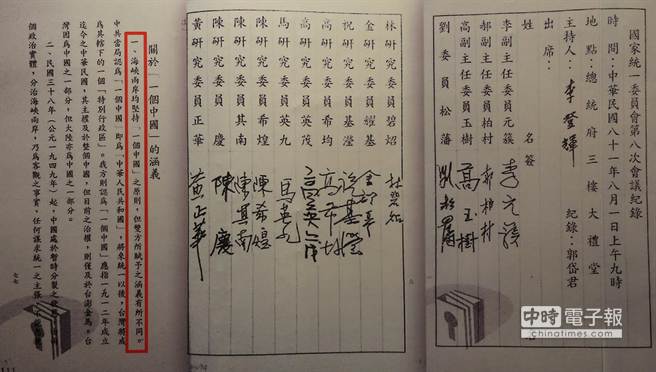 國家統一委員會第八次會議紀錄
時間：中華民國八十一年八月一日上午九時
地點：總統府三樓大禮堂
主持人：李登輝 紀錄：郭岱君
出席：
姓名 簽
李副主任委員元簇 李元簇
郝副主任委員柏村 郝柏村
高副主任委員玉樹 高玉樹
劉委員松藩 劉松藩
林研究委員碧炤 林碧炤
金研究委員耀基
祝研究委員基瀅 祝基瀅
高研究委員希均 高希均
高研究委員英茂 高英茂
馬研究委員英九 馬英九
陳研究委員希煌 陳希煌
陳研究委員其南 陳其南
陳研究委員慶 陳慶
黃研究委員正華 黃正華
關於「一個中國」的涵義
一、海峽兩岸均堅持「一個中國」之原則，但雙方所賦予之涵義有所不同。
中共當局認為「一個中國」即為「中華人民共和國」，將來統一以後，台灣將成
為其轄下的一個「特別行政區」。我方則認為「一個中國」應指一九一二年成立
迄今之中華民國，其主權及於整個中國，但目前之治權，則僅及於台澎金馬。台
灣固為中國之一部分，但大陸亦為中國之一部分。
二、民國三十八年（公元一九四九年）起，中國處於暫時分裂之
個政治實體，分治海峽兩岸，乃為客觀之事實，任何謀求統一之主張
七七
中時電子報
chinatimes.com